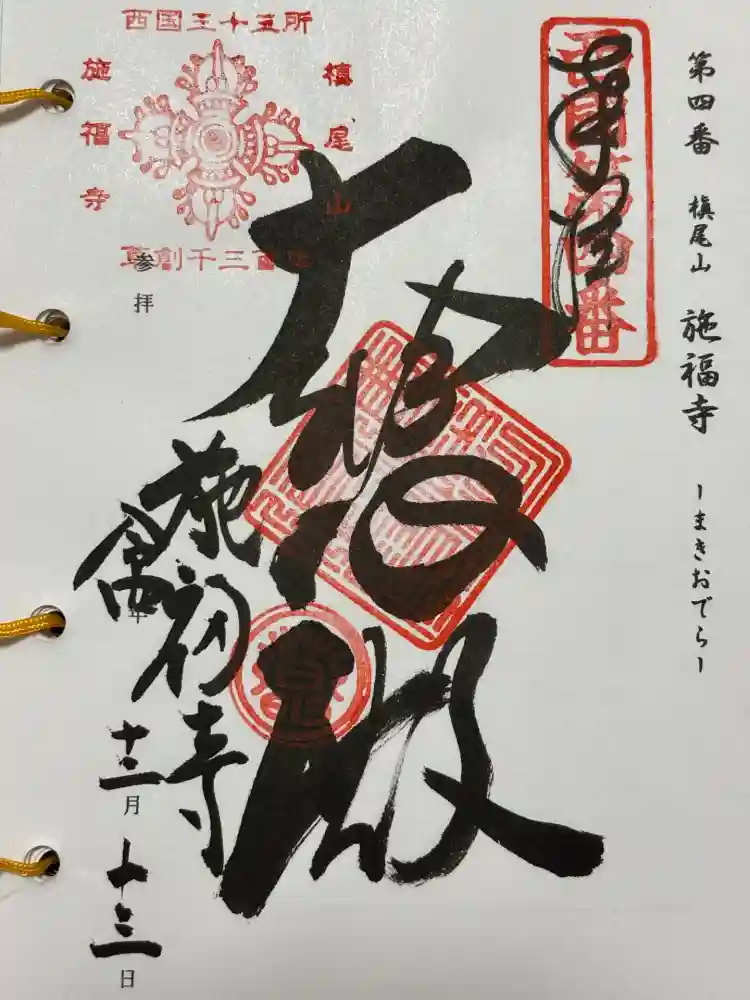 第四番 槇尾山 施福寺 ーまきおでらー
奉拝
西国第四番
西国三十三所
槇尾山
施福寺
草創千三百年
大悲殿
施福寺
参拝
年
十二月
十三日